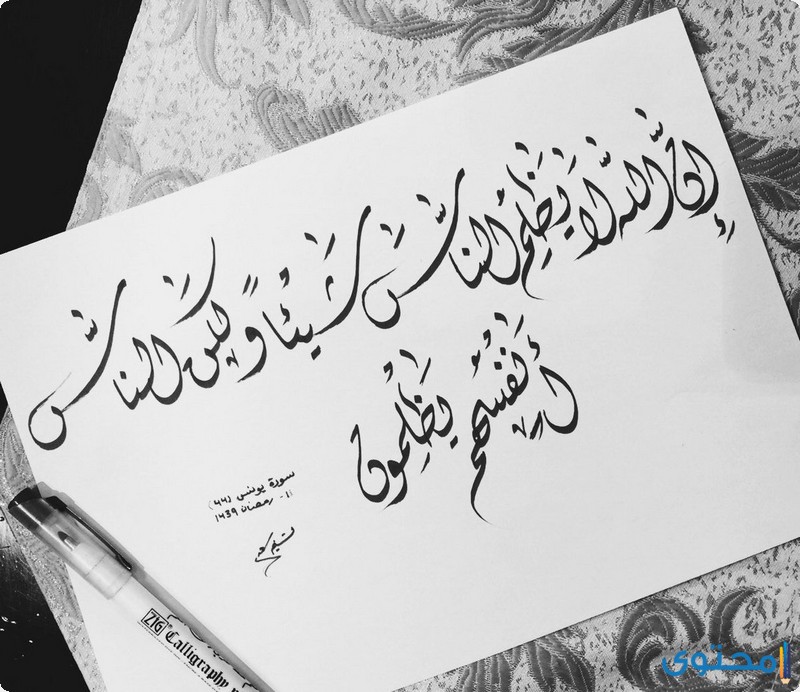 إنَّ اللَّه لا يَظْلِمُ النَّاسَ شَيْئًا وَلكنَّ النَّاسَ
أَنْفُسَهُمْ يَظْلِمُونَ
سورة يونس (٤٤)
١١- رمضان ١٤٣٩
ZIG Calligraphy
محتوى